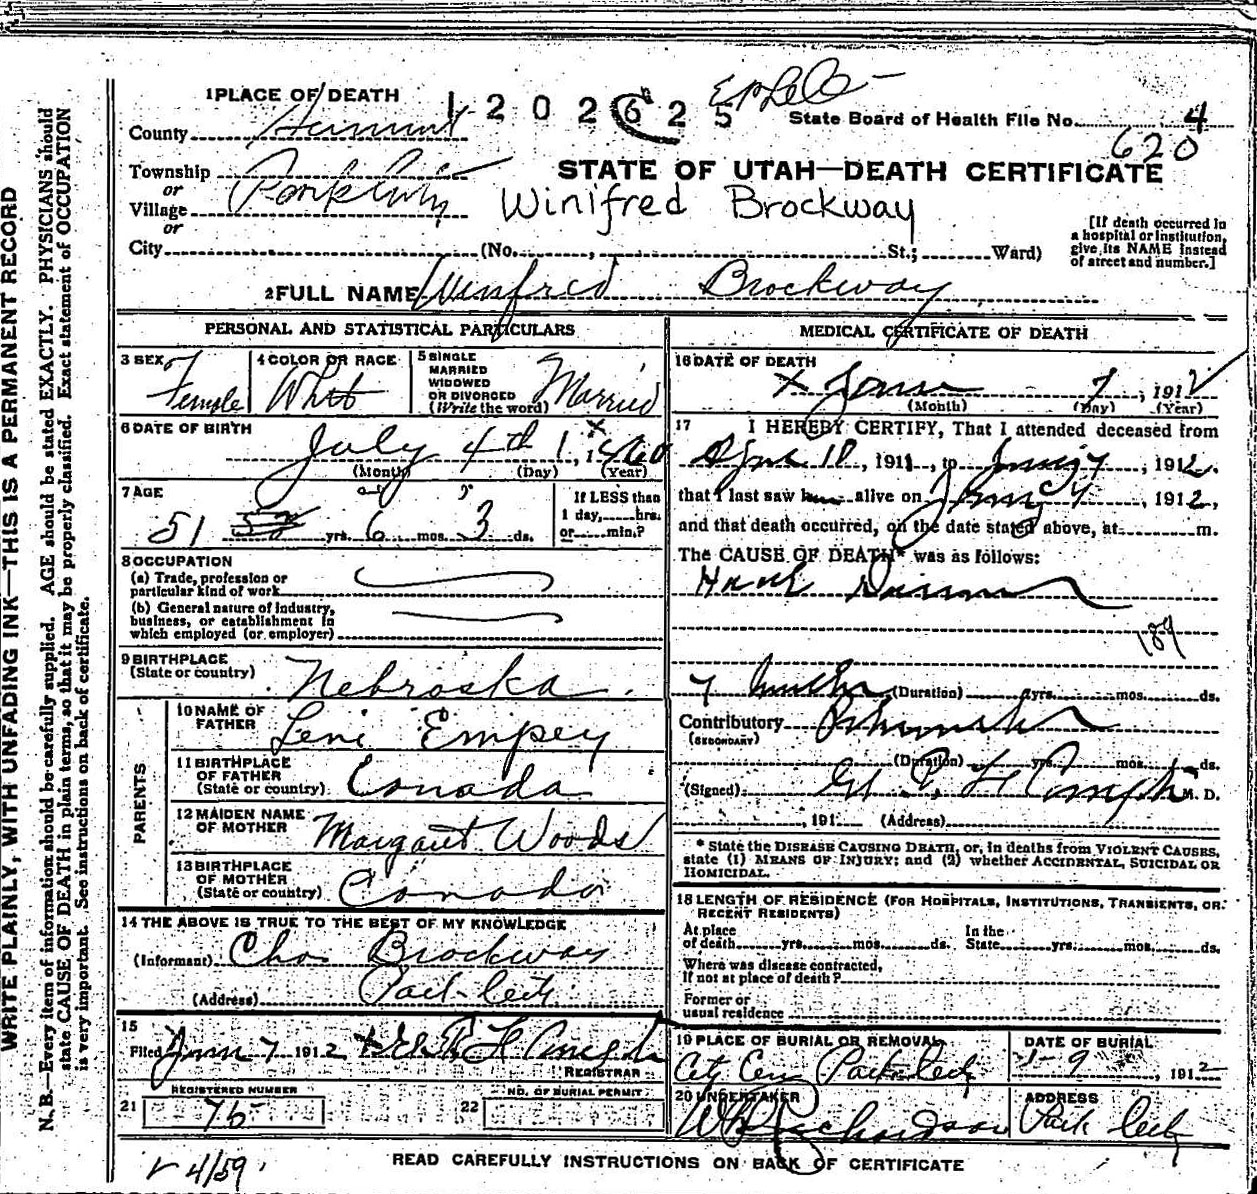 WRITE PLAINLY, WITH UNFADING INK—THIS IS A PERMANENT RECORD
N. B.—Every item of information should be carefully supplied. AGE should be stated EXACTLY. PHYSICIANS should
state CAUSE OF DEATH in plain terms, so that it may be properly classified. Exact statement of OCCUPATION
is very important. See instructions on back of certificate.
1 PLACE OF DEATH
1202625
State Board of Health File No. 4
620
County Summit
Township
or
Village Park City
or
STATE OF UTAH—DEATH CERTIFICATE
Winifred Brockway
City (No. , St.; Ward)
[If death occurred in
a hospital or institution,
give its NAME instead
of street and number.]
2 FULL NAME Winifred Brockway
PERSONAL AND STATISTICAL PARTICULARS
3 SEX Female
4 COLOR OR RACE White
5 SINGLE
MARRIED
WIDOWED
OR DIVORCED
(Write the word) Married
6 DATE OF BIRTH
July 4th 1, 1860
(Month) (Day) (Year)
7 AGE
51 52 yrs. 6 mos. 3 ds.
If LESS than
1 day, hrs.
or min.?
8 OCCUPATION
(a) Trade, profession or
particular kind of work
(b) General nature of industry,
business, or establishment in
which employed (or employer)
9 BIRTHPLACE
(State or country) Nebraska
PARENTS
10 NAME OF
FATHER Levi Empey
11 BIRTHPLACE
OF FATHER
(State or country) Canada
12 MAIDEN NAME
OF MOTHER Margaret Woods
13 BIRTHPLACE
OF MOTHER
(State or country) Canada
14 THE ABOVE IS TRUE TO THE BEST OF MY KNOWLEDGE
(Informant) Chas Brockway
(Address) Park City
15
Filed Jan 7 1912
REGISTRAR
REGISTERED NUMBER
21 75
NO. OF BURIAL PERMIT
22
MEDICAL CERTIFICATE OF DEATH
16 DATE OF DEATH
x 7, 1912
(Month) (Day) (Year)
17 I HEREBY CERTIFY, That I attended deceased from
10, 1911, to 7, 1912.
that I last saw h alive on 1912,
and that death occurred, on the date stated above, at m.
The CAUSE OF DEATH* was as follows:
189
7 months (Duration) yrs. mos. ds.
Contributory
(SECONDARY)
(Duration) yrs. mos. ds.
(Signed) M. D.
, 191 (Address)
* State the DISEASE CAUSING DEATH, or, in deaths from VIOLENT CAUSES,
state (1) MEANS OF INJURY; and (2) whether ACCIDENTAL, SUICIDAL OR
HOMICIDAL.
18 LENGTH OF RESIDENCE (FOR HOSPITALS, INSTITUTIONS, TRANSIENTS, OR
RECENT RESIDENTS)
At place
of death yrs. mos. ds.
In the
State yrs. mos. ds.
Where was disease contracted,
If not at place of death?
Former or
usual residence
19 PLACE OF BURIAL OR REMOVAL
City Cem Park City
DATE OF BURIAL
1-9, 1912
20 UNDERTAKER
Richardson
ADDRESS
Park City
4/59
READ CAREFULLY INSTRUCTIONS ON BACK OF CERTIFICATE